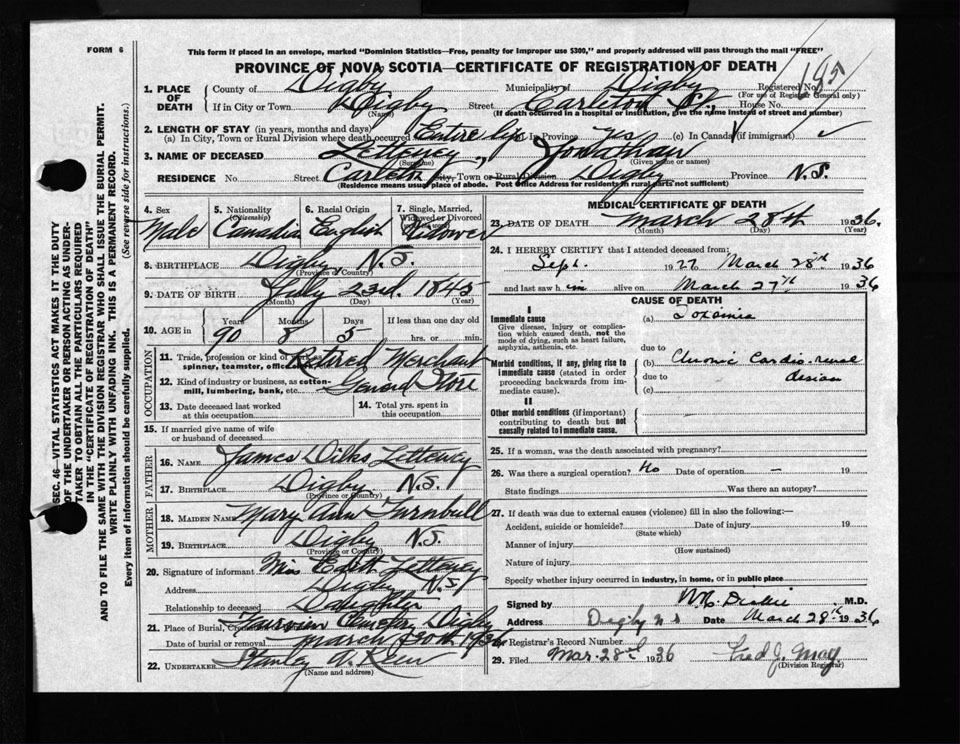 FORM 6
This form if placed in an envelope, marked "Dominion Statistics—Free, penalty for improper use $300," and properly addressed will pass through the mail "FREE"
PROVINCE OF NOVA SCOTIA—CERTIFICATE OF REGISTRATION OF DEATH
185
1. PLACE OF DEATH County of Digby Municipality of Digby Registered No.
(For use of Registrar General only)
If in City or Town Digby Street Carleton St. House No.
(Name) (If death occurred in a hospital or institution, give the name instead of street and number)
2. LENGTH OF STAY (in years, months and days)
(a) In City, Town or Rural Division where death occurred Entire life In Province Yes (c) In Canada (if immigrant)
3. NAME OF DECEASED Letteney, Jonathan
(Surname) (Given name or names)
RESIDENCE No. Street Carleton St. City, Town or Rural Division Digby Province N.S.
(Residence means usual place of abode. Post Office Address for residents in rural parts not sufficient)
4. Sex Male
5. Nationality (Citizenship) Canadian
6. Racial Origin English
7. Single, Married, Widowed or Divorced Widower
8. BIRTHPLACE Digby N.S.
(Province or Country)
9. DATE OF BIRTH July 23rd. 1845
(Month) (Day) (Year)
10. AGE in Years 90 Months 8 Days 5 If less than one day old
hrs. or min.
OCCUPATION
11. Trade, profession or kind of work as spinner, teamster, office Retired Merchant
12. Kind of industry or business, as cotton-mill, lumbering, bank, etc. General Store
13. Date deceased last worked at this occupation
14. Total yrs. spent in this occupation
15. If married give name of wife or husband of deceased
FATHER
16. NAME James Wilks Letteney
17. BIRTHPLACE Digby N.S.
(Province or Country)
MOTHER
18. MAIDEN NAME Mary Ann Turnbull
19. BIRTHPLACE Digby N.S.
(Province or Country)
20. Signature of informant Miss Edith Letteney
Address Digby N.S.
Relationship to deceased Daughter
21. Place of Burial, Fairview Cemetery Digby
Date of burial or removal March 30th 1936
22. UNDERTAKER Stanley
(Name and address)
MEDICAL CERTIFICATE OF DEATH
23. DATE OF DEATH March 28th 1936.
(Month) (Day) (Year)
24. I HEREBY CERTIFY that I attended deceased from:
Sept. 1927 March 28th 1936
and last saw him alive on March 27th 1936
CAUSE OF DEATH
I
Immediate cause (a)
Give disease, injury or complication which caused death, not the mode of dying, such as heart failure, asphyxia, asthenia, etc.
due to
Morbid conditions, if any, giving rise to immediate cause (stated in order proceeding backwards from immediate cause).
(b) Chronic Cardio-renal
due to disease
(c)
II
Other morbid conditions (if important) contributing to death but not causally related to immediate cause.
25. If a woman, was the death associated with pregnancy?
26. Was there a surgical operation? No Date of operation — 19
State findings Was there an autopsy?
27. If death was due to external causes (violence) fill in also the following:—
Accident, suicide or homicide? Date of injury 19
(State which)
Manner of injury
(How sustained)
Nature of injury
Specify whether injury occurred in industry, in home, or in public place
Signed by Dickie M.D.
Address Digby N.S Date March 28th 1936
28. Registrar's Record Number
29. Filed Mar. 28th 1936 Fred J. May
(Division Registrar)
SEC. 46—VITAL STATISTICS ACT MAKES IT THE DUTY
OF THE UNDERTAKER OR PERSON ACTING AS UNDER-
TAKER TO OBTAIN ALL THE PARTICULARS REQUIRED
IN THE "CERTIFICATE OF REGISTRATION OF DEATH"
AND TO FILE THE SAME WITH THE DIVISION REGISTRAR WHO SHALL ISSUE THE BURIAL PERMIT.
WRITE PLAINLY WITH UNFADING INK. THIS IS A PERMANENT RECORD.
Every item of information should be carefully supplied. (See reverse side for instructions.)